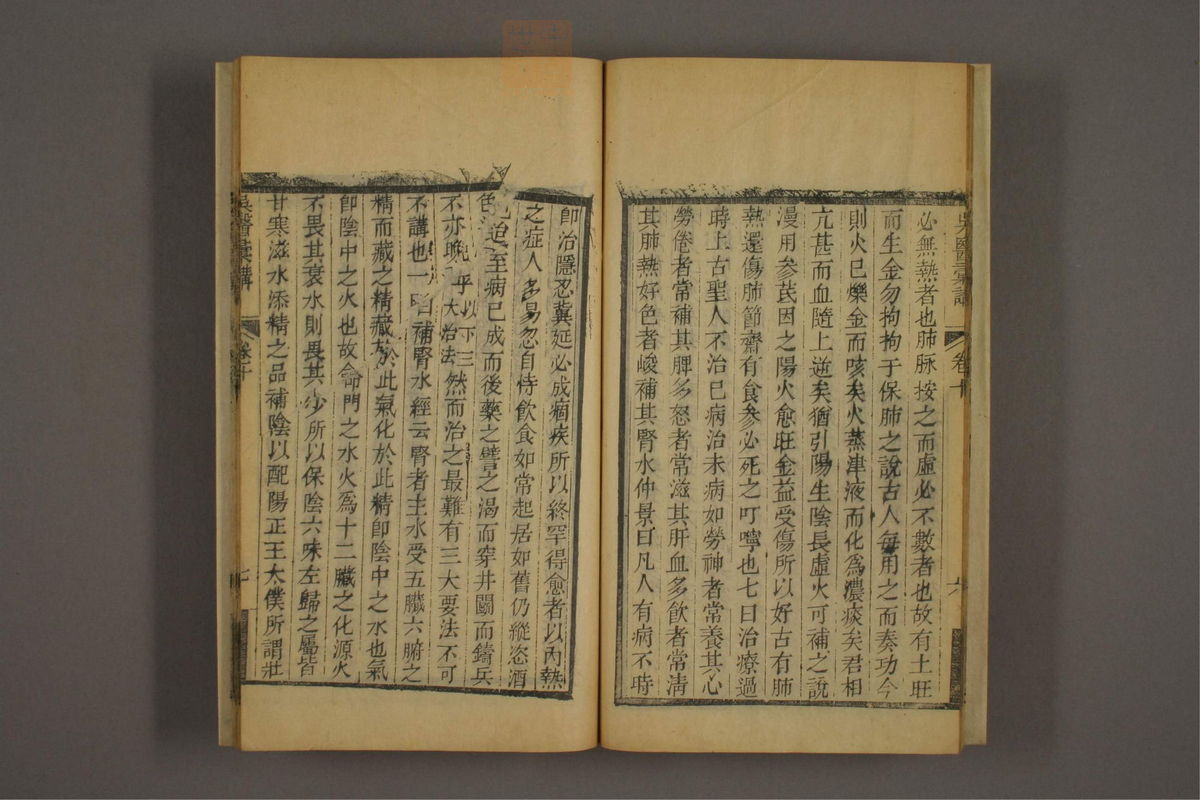 吳醫彙講 卷十 六
必無熱者也肺脉按之而虛必不數者也故有土旺
而生金勿拘拘于保肺之說古人每用之而奏功今
則火已爍金而咳矣火蒸津液而化爲濃痰矣君相
亢甚而血隨上逆矣猶引陽生陰長虛火可補之說
漫用參芪因之陽火愈旺金益受傷所以好古有肺
熱還傷肺節齋有食參必死之叮嚀也七曰治療過
時上古聖人不治已病治未病如勞神者常養其心
勞倦者常補其脾多怒者常滋其肝血多飲者常清
其肺熱好色者峻補其腎水仲景曰凡人有病不時
卽治隱忍冀延必成痼疾所以終罕得愈者以內熱
之症人多易忽自恃飲食如常起居如舊仍縱恣酒
色迨至病已成而後藥之譬之渴而穿井鬬而鑄兵
不亦晚乎以下三大治法然而治之最難有三大要法不可
不講也一曰補腎水經云腎者主水受五臟六腑之
精而藏之精藏於此氣化於此精卽陰中之水也氣
卽陰中之火也故命門之水火爲十二臟之化源火
不畏其衰水則畏其少所以保陰六味左歸之屬皆
甘寒滋水添精之品補陰以配陽正王太僕所謂壯
吳醫彙講 卷十 七